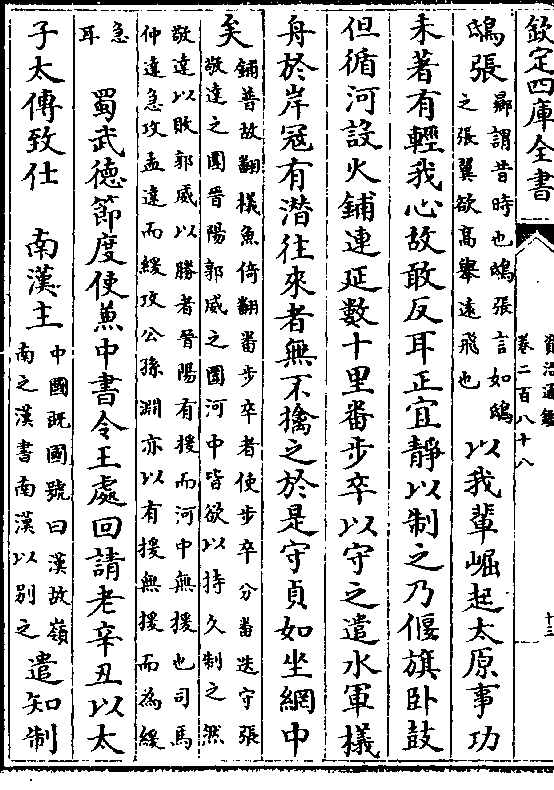 欽定四庫全書
資治通鑑
卷二百八十八
十三
鴟張
曏謂昔時也鴟張言如鴟
之張翼欲高舉遠飛也
以我輩崛起太原事功
未著有輕我心故敢反耳正宜靜以制之乃偃旗卧鼓
但循河設火鋪連延數十里畨步卒以守之遣水軍檥
舟於岸冦有潜往來者無不擒之於是守貞如坐網中
矣
鋪普故翻檥魚倚翻畨步卒者使步卒分畨迭守張
敬達之圍晉陽郭威之圍河中皆欲以持久制之然
敬達以敗郭威以勝者晉陽有援而河中無援也司馬
仲達急攻孟達而緩攻公孫淵亦以有援無援而為緩
急
耳
蜀武徳節度使兼中書令王處回請老辛丑以太
子太傅致仕　南漢主
中國既國號曰漢故嶺
南之漢書南漢以别之
遣知制